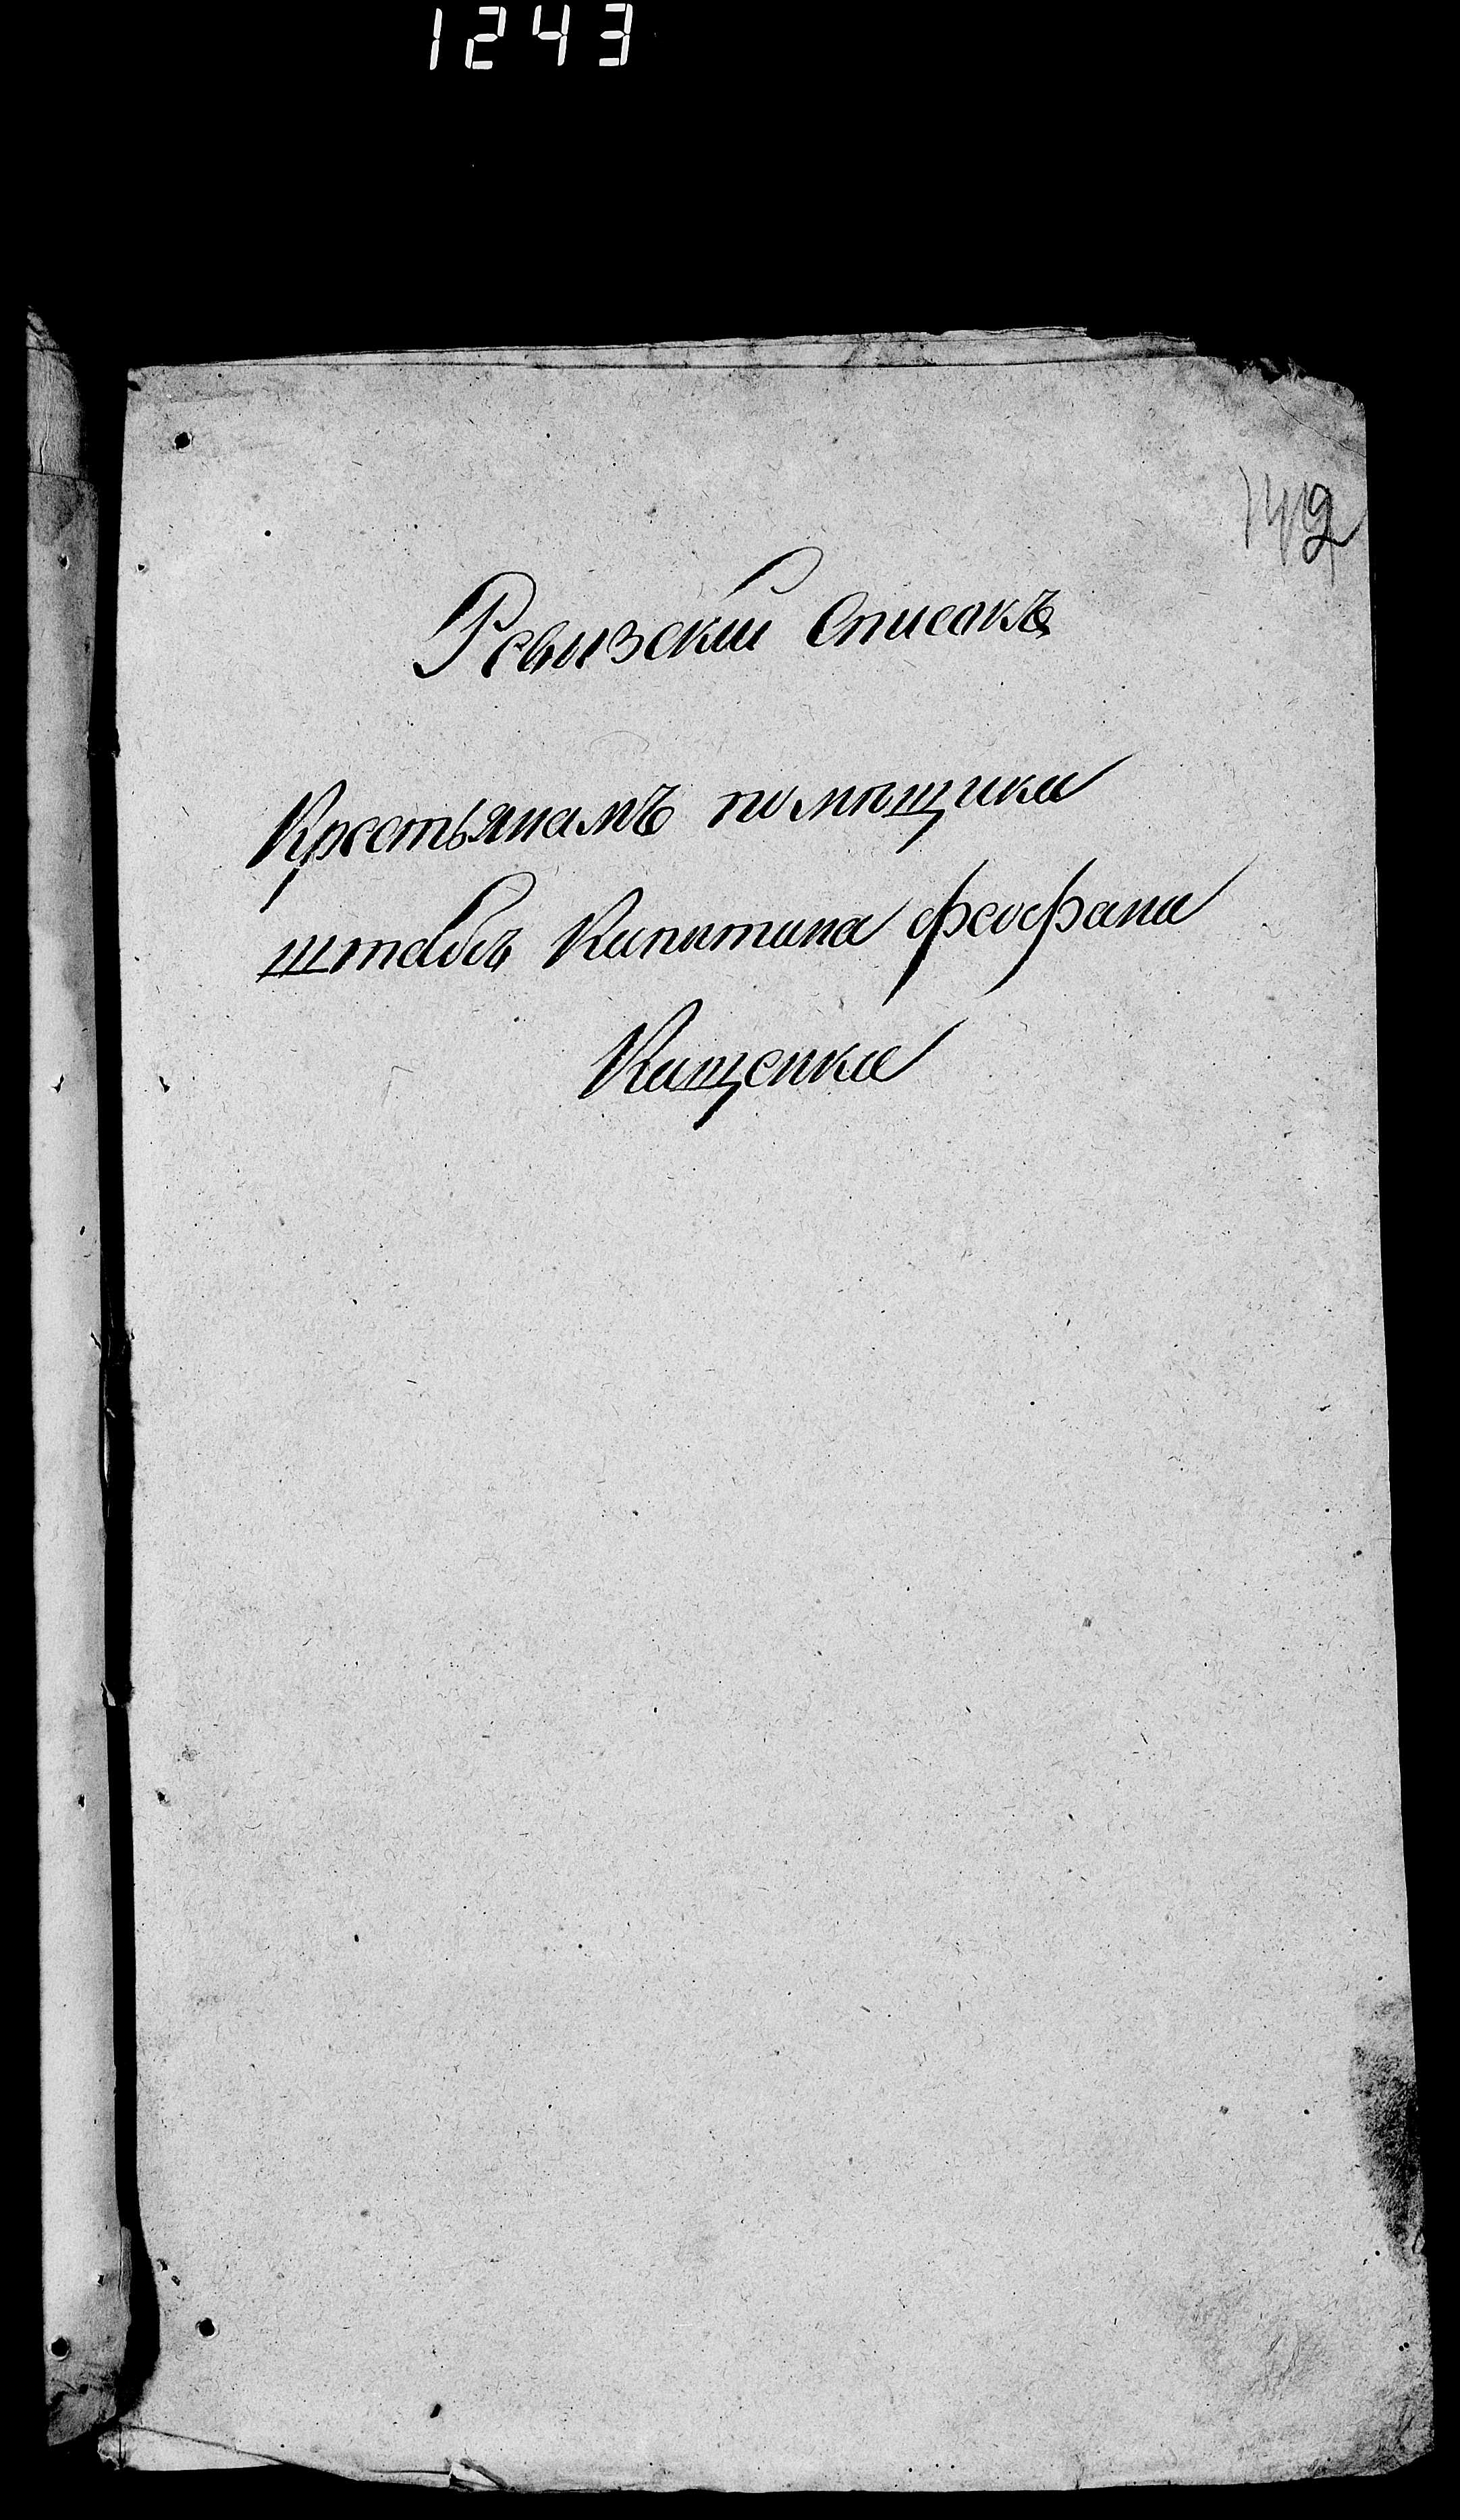 1243
142
Ревизскій Списокъ
Крестьянамъ помѣщика
штабсъ Капитана Феофана
Кащенка